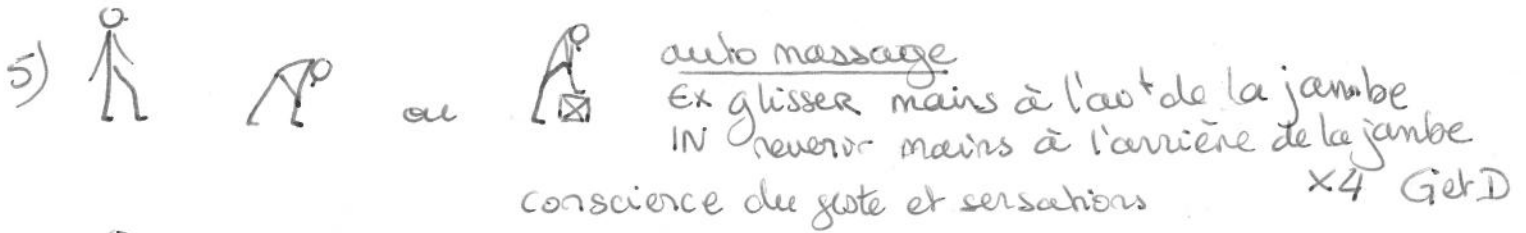 5)
ou
auto massage
EX glisser mains à l'avt de la jambe
IN revenir mains à l'arrière de la jambe
conscience du geste et sensations
X4 G et D